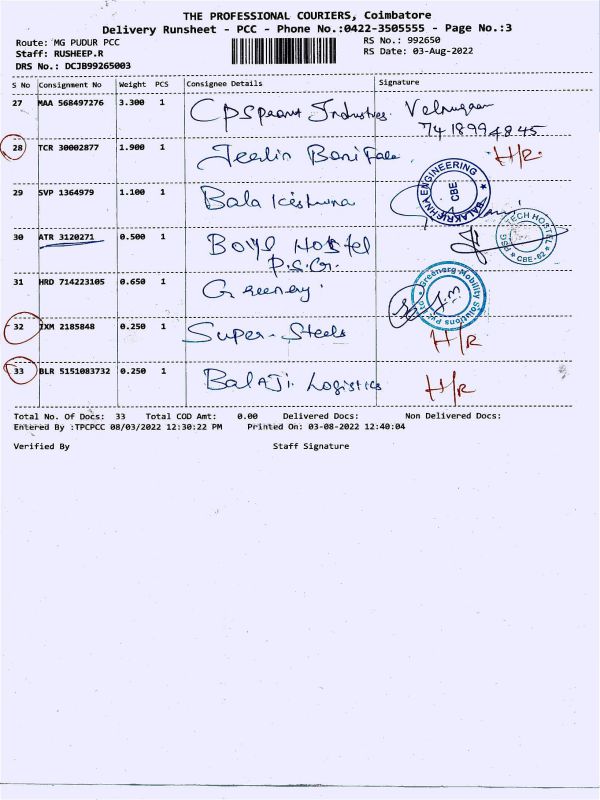 THE PROFESSIONAL COURIERS, Coimbatore
Delivery Runsheet - PCC - Phone No.:0422-3505555 - Page No.:3
Route: MG PUDUR PCC
RS No.: 992650
Staff: RUSHEEP.R
RS Date: 03-Aug-2022
DRS No.: DCJB99265003
S No Consignment No Weight PCS Consignee Details Signature
27 MAA 568497276 3.300 1 Industries
74 18994845
28 TCR 30002877 1.900 1 H/R
29 SVP 1364979 1.100 1 Bala
BALAKRISHNA ENGINEERING CBE
30 ATR 3120271 0.500 1 Boys Hostel
P.S.G.
PSG TECH HOSTEL CBE-02
31 HRD 714223105 0.650 1 Greenerg
Greenerg Mobility Solutions Pvt Ltd
32 IXM 2185848 0.250 1 Super-Steels H/R
33 BLR 5151083732 0.250 1 Balaji Logistics H/R
Total No. Of Docs: 33 Total COD Amt: 0.00 Delivered Docs: Non Delivered Docs:
Entered By :TPCPCC 08/03/2022 12:30:22 PM Printed On: 03-08-2022 12:40:04
Verified By Staff Signature